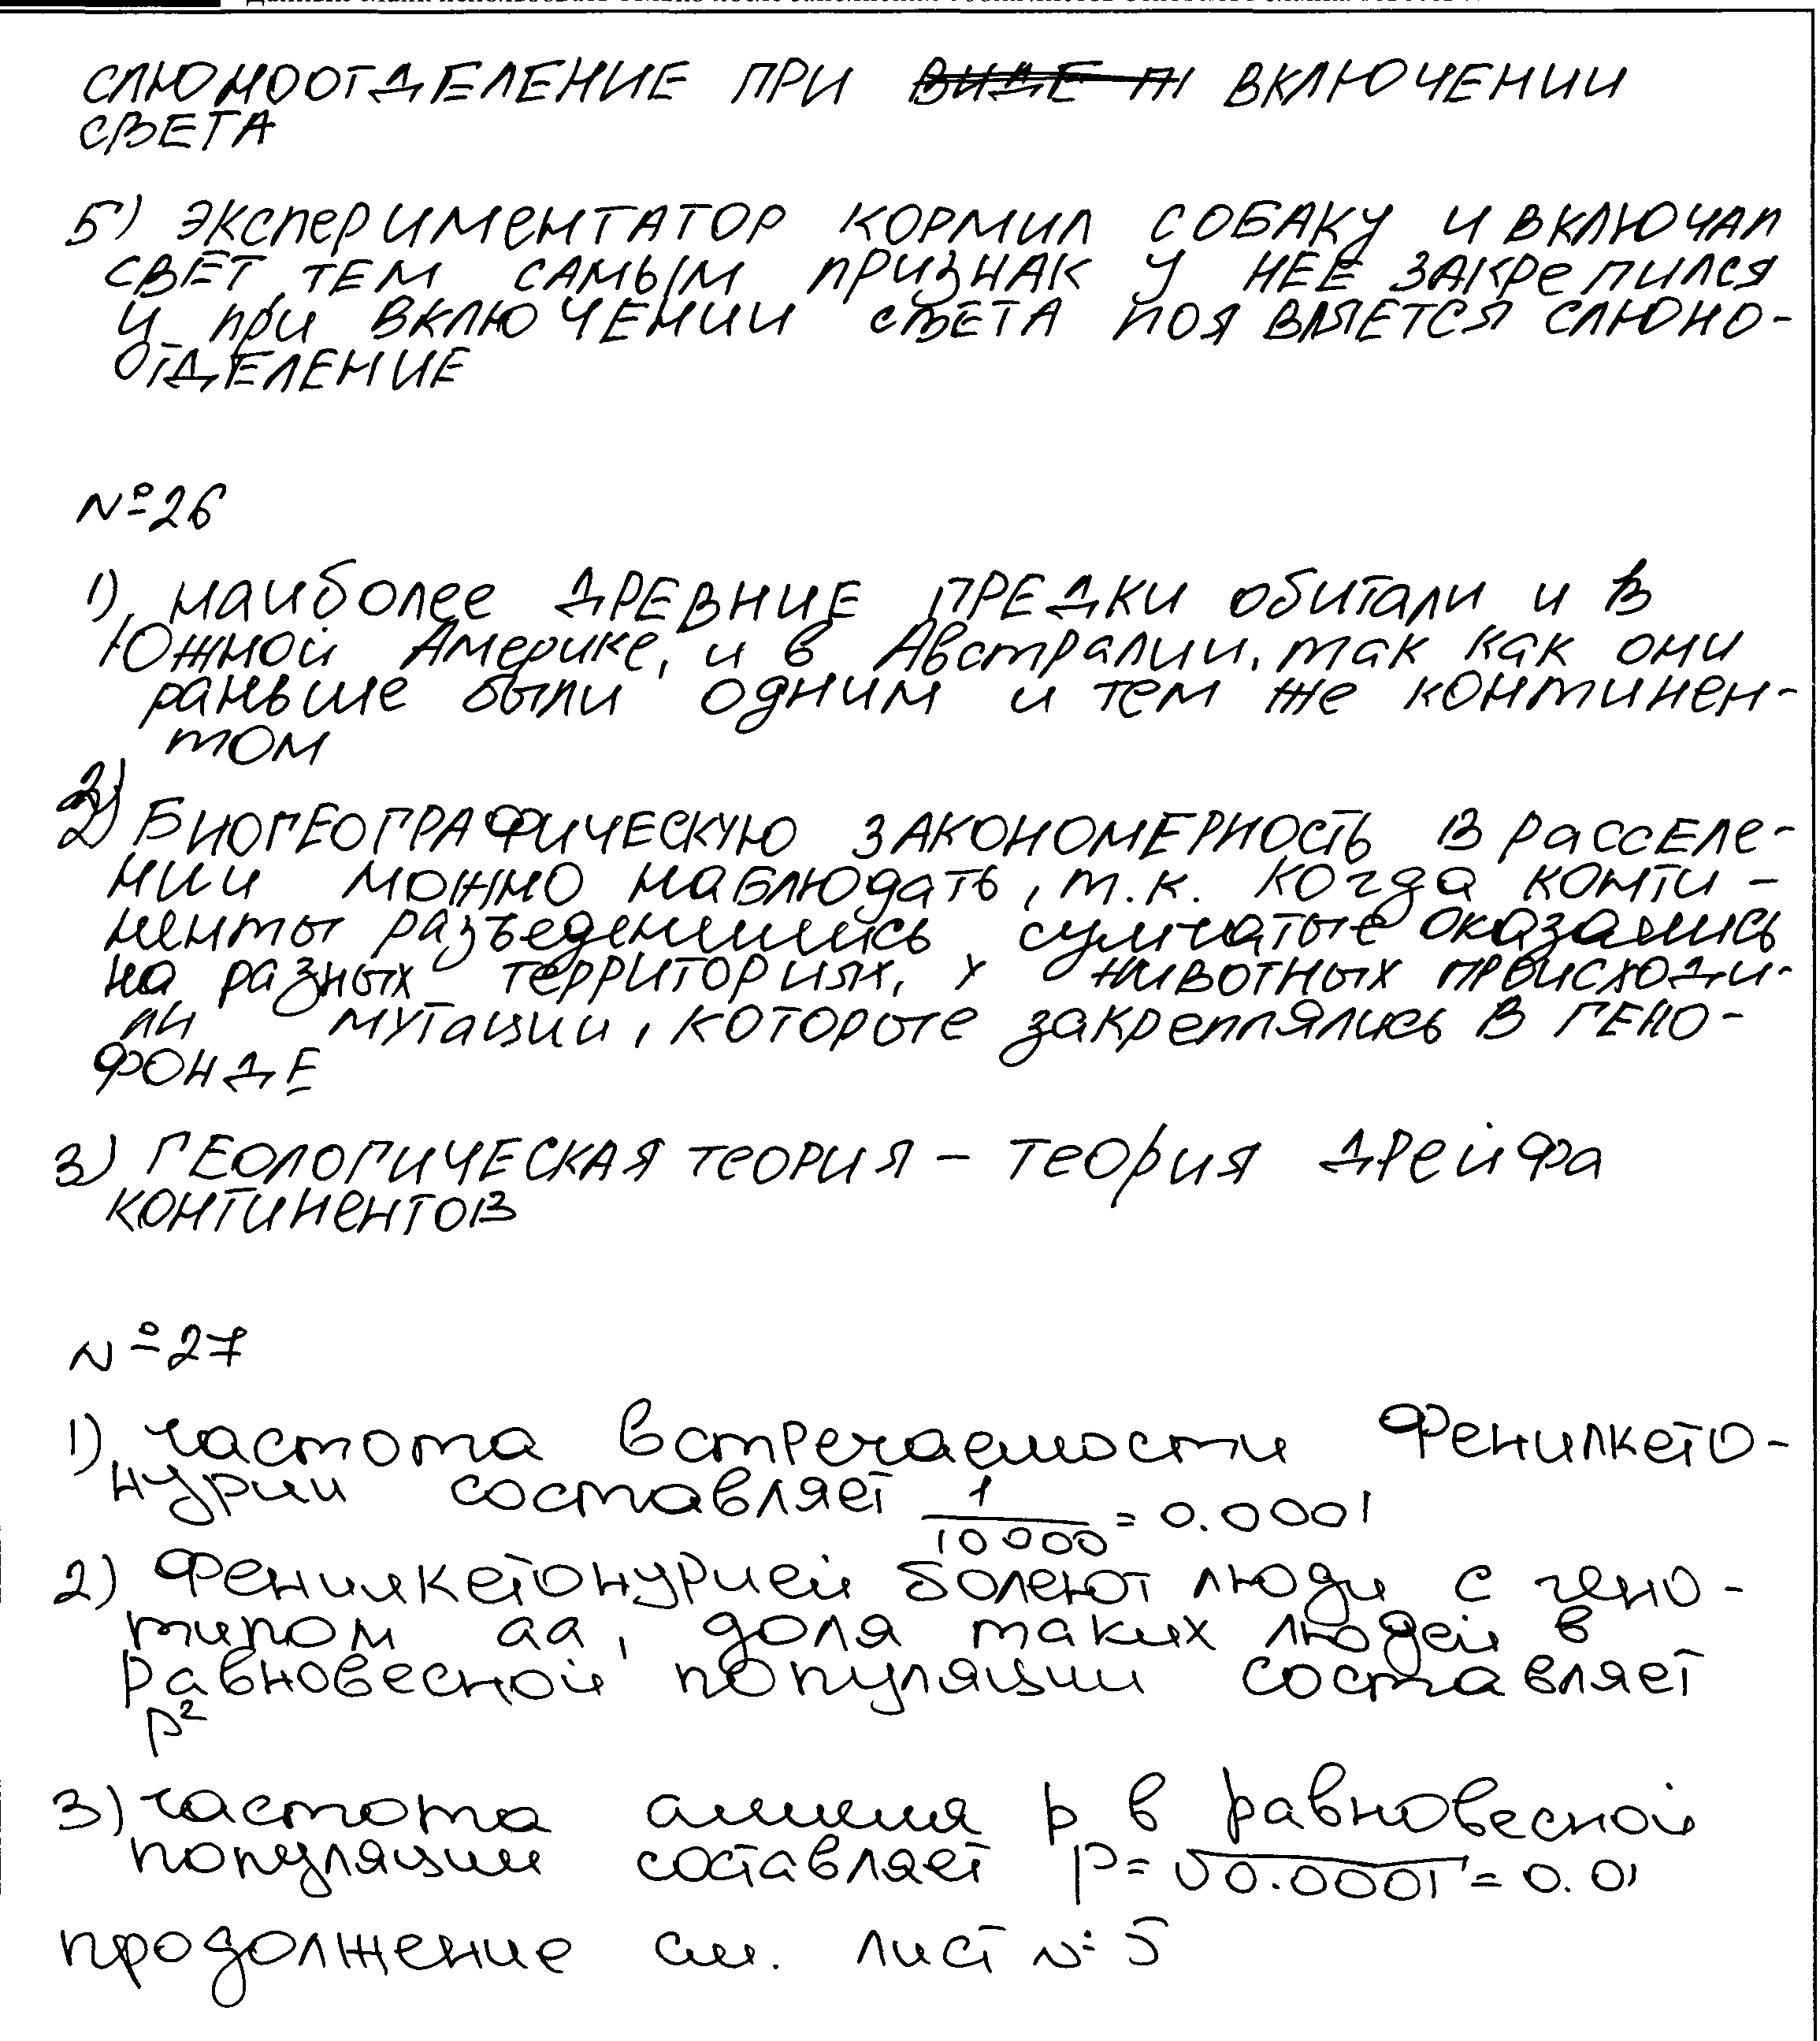 СЛЮНООТДЕЛЕНИЕ ПРИ ВКЛЮЧЕНИИ
СВЕТА
5) ЭКСПЕРИМЕНТАТОР КОРМИЛ СОБАКУ И ВКЛЮЧАЛ
СВЕТ, ТЕМ САМЫМ ПРИЗНАК У НЕЁ ЗАКРЕПИЛСЯ
И ПРИ ВКЛЮЧЕНИИ СВЕТА ПОЯВЛЯЕТСЯ СЛЮНО-
ОТДЕЛЕНИЕ
№26
1) наиболее ДРЕВНИЕ ПРЕДКИ обитали и в
Южной Америке, и в Австралии, так как они
раньше были одним и тем же континен-
том
2) БИОГЕОГРАФИЧЕСКУЮ ЗАКОНОМЕРНОСТЬ В РАССЕЛЕ-
НИИ можно наблюдать, т.к. когда конти-
ненты разъеденились сумчатые оказались
на разных территориях, у животных происходи-
ли мутации, которые закреплялись в ГЕНО-
ФОНДЕ
3) ГЕОЛОГИЧЕСКАЯ ТЕОРИЯ – ТЕОРИЯ ДРЕЙФА
КОНТИНЕНТОВ
№27
1) частота встречаемости Фенилкето-
нурии составляет 1/10000 = 0.0001
2) Фенилкетонурией болеют люди с гено-
типом aa, доля таких людей в
равновесной популяции составляет
p²
3) частота аллеля p в равновесной
популяции составляет p=√0.0001 = 0.01
продолжение см. лист № 5